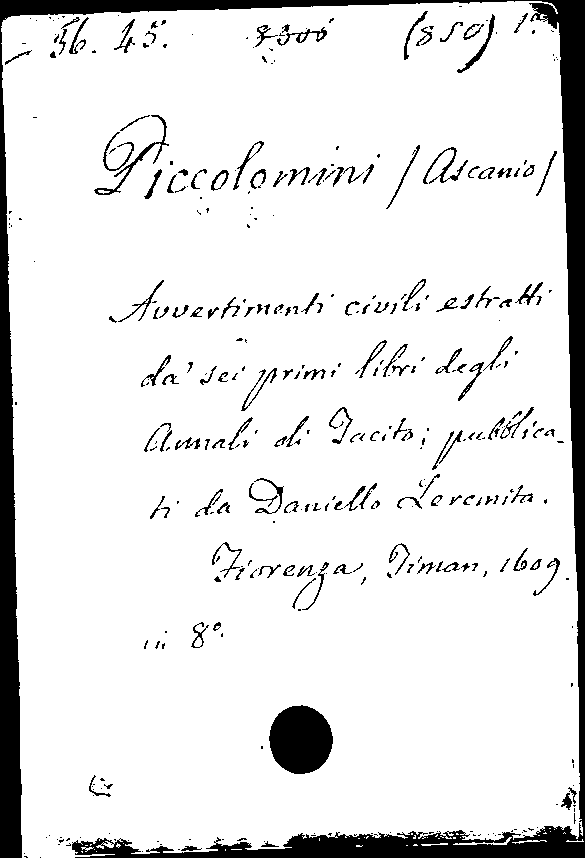 56. 45. 8300 (850) 1ª.
Piccolomini /Ascanio/
Avvertimenti civili estratti
da' sei primi libri degli
Annali di Tacito; pubblica-
ti da Daniello Leremita.
Fiorenza, Timan, 1609.
in 8º.